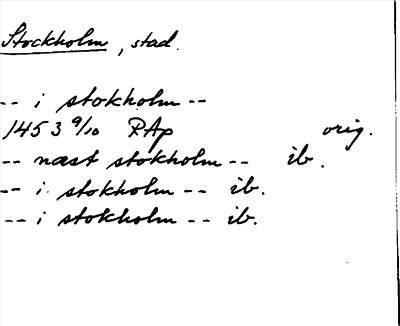 Stockholm, stad.
-- i stokholm --
1453 9/10 RAp orig.
-- næst stokholm -- ib.
-- i stokholm -- ib.
-- i stokholm -- ib.